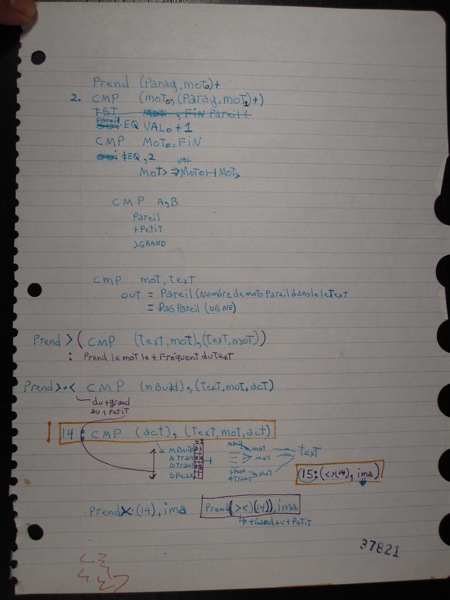 Prend (Paray, moto)+
2. CMP (moto, (Paray, mot1)+)
TST Mot, FiN Pareil (
Pareil EQ VAL0 + 1
CMP Moto, FiN
‡EQ, 2 val
CMP A,B
Pareil
+Petit
>GRAND
CMP mot, text
OUT = Pareil (Nombre de mots Pareil dans le text
= Pas Pareil (NB NE)
Prend > ( CMP (text, mot), (text, mot))
: Prend le mot le + Fréquent du text
Prend >·< CMP (MBuild), (text, mot, act)
du + grand
au + Petit
14 : CMP (act), (text, mot, act)
MBuild
ATrans
DTrans
SPeak
mot
mot
mot
text
15: (<>(14), ima)
Prend (14), ima
Prend (><)(14)), ima
+Gand au + Petit
37821